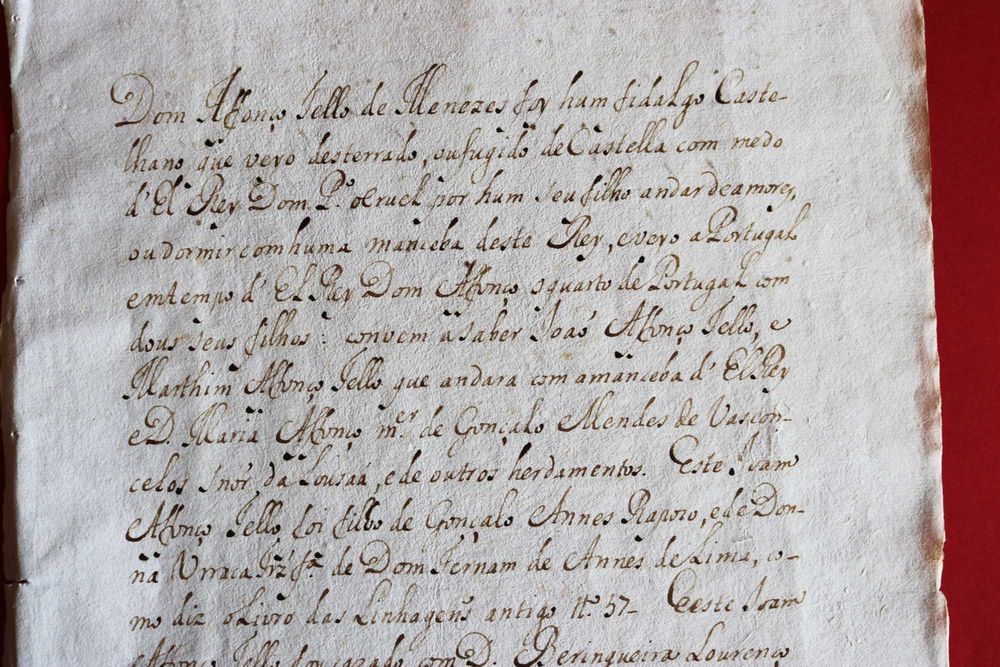 Dom Affonço Tello de Menezes foy hum fidalgo Caste-
lhano que veyo desterrado, ou fugido de Castella com medo
d'El Rey Dom P.º o Cruel por hum seu filho andar de amores,
ou dormir com huma manceba deste Rey, e veyo a Portugal
em tempo d' El Rey Dom Affonço o quarto de Portugal com
dous seus filhos: convem a saber Joaõ Affonço Tello, e
Marthim Affonço Tello que andara com a manceba d' El Rey
e D. Maria Affonço m.er de Gonçalo Mendes de Vascon-
celos Snor da Lousaã, e de outros herdamentos. Este Joam
Affonço Tello foi filho de Gonçalo Annes Rapozo, e de Don-
na Urraca Frz fª de Dom Fernam de Annes de Lima, co-
mo diz o Livro das Linhagens antigo tt.º 57- Eeste Joam
Affonço Tello foy cazado com D. Beringueira Lourenço